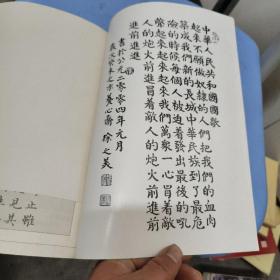 中華人民共和國國歌
起來不願做奴隸的人們把我們的血肉
築成我們新的長城中華民族到了最危
險的時候每個人被迫着發出最後的吼
聲起來起來起來我們萬衆一心冒着敵
人的炮火前進冒着敵人的炮火前進前
進前進進
書於公元二零零四年元月
歲次癸未之冬養心齋 徐之美